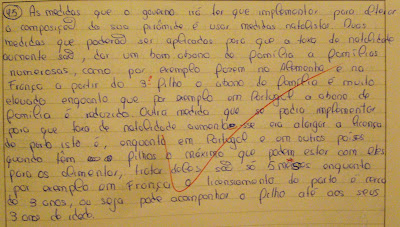 45) As medidas que o governo irá ter que implementar para alterar
a composição da sua pirâmide é usar medidas natalistas. Duas
medidas que poderão ser aplicadas para que a taxa de natalidade
aumente são, dar um bom abono de família a famílias
numerosas, como por exemplo fazem na Alemanha e na
França a partir do 3º filho o abono de família é muito
elevado enquanto que por exemplo em Portugal o abono de
família é reduzido. Outra medida que se podia implementar
para que taxa de natalidade aumentasse era alargar a licença
de parto isto é, enquanto em Portugal e em outros países
quando têm filhos o máximo que podem estar com eles
para os alimentar, tratar deles são só 5 meses enquanto
por exemplo em França o licensamento do parto é cerca
de 3 anos, ou seja pode acompanhar o filho até aos seus
3 anos de idade.